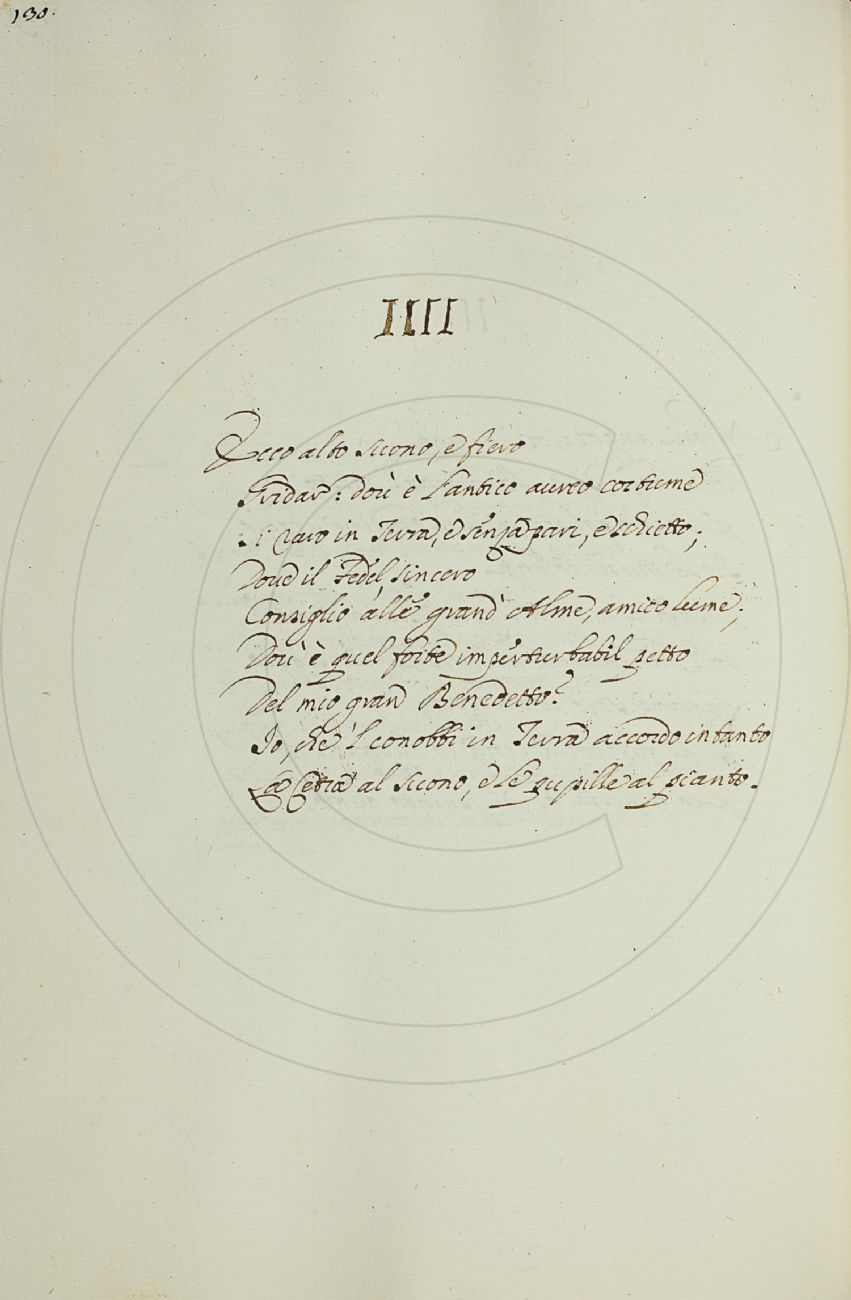 130.
IIII
Ecco alto suono, e fiero
Gridar: dou' è l'antico aureo costume
Sì raro in Terra, e senza pari, e schietto;
Dou'è il Fedel sincero
Consiglio alle grand' Alme, amico lume;
Dou' è quel forte imperturbabil petto
Del mio gran Benedetto?
Io, che 'l conobbi in Terra accordo intanto
La Cetra al suono, e le pupille al pianto.